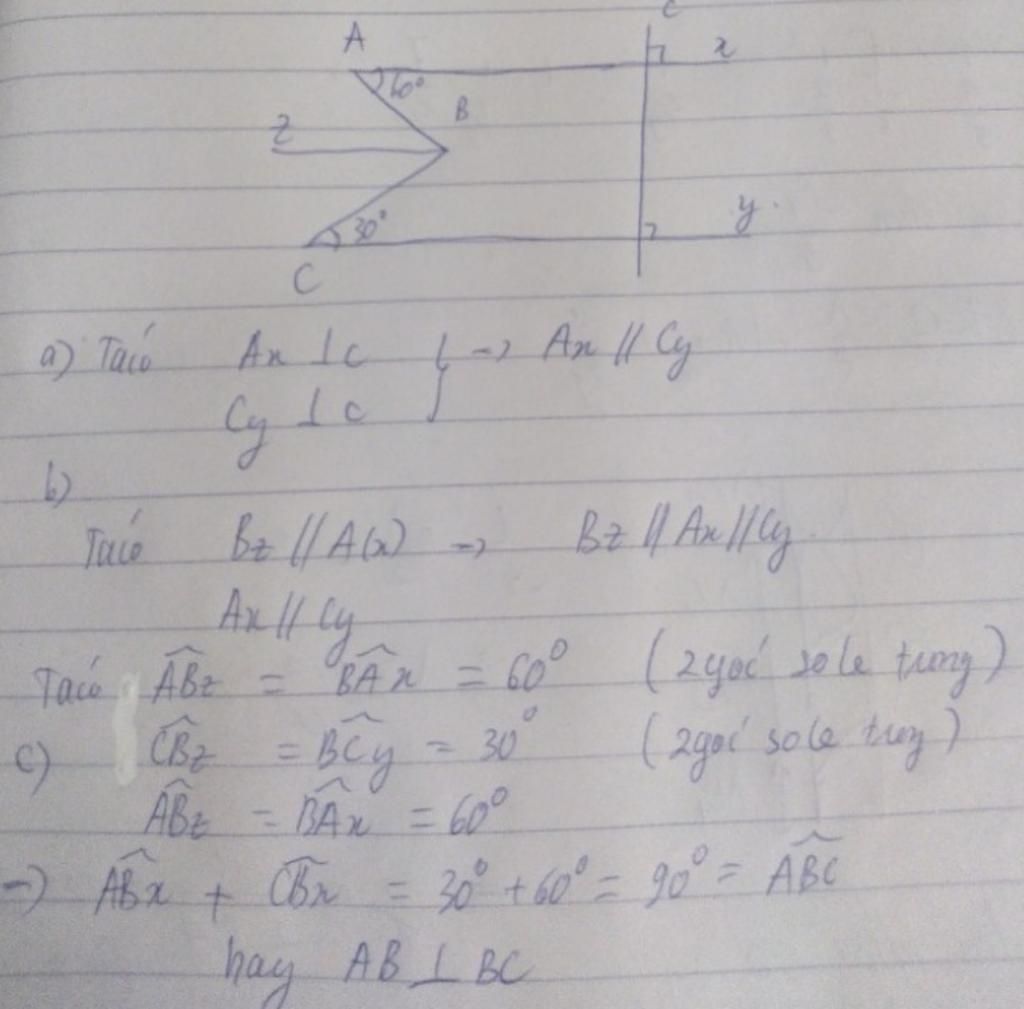 c
A
x
60°
B
z
y.
30°
C
a) Ta có Ax ⊥ c } → Ax // Cy
Cy ⊥ c
b)
Ta có Bz // A(x) → Bz // Ax // Cy.
Ax // Cy
Ta có ABz = BAx = 60° (2 góc so le trong)
c) CBz = BCy = 30° (2 góc so le trong)
ABz = BAx = 60°
→ ABx + CBx = 30° + 60° = 90° = ABC
hay AB ⊥ BC